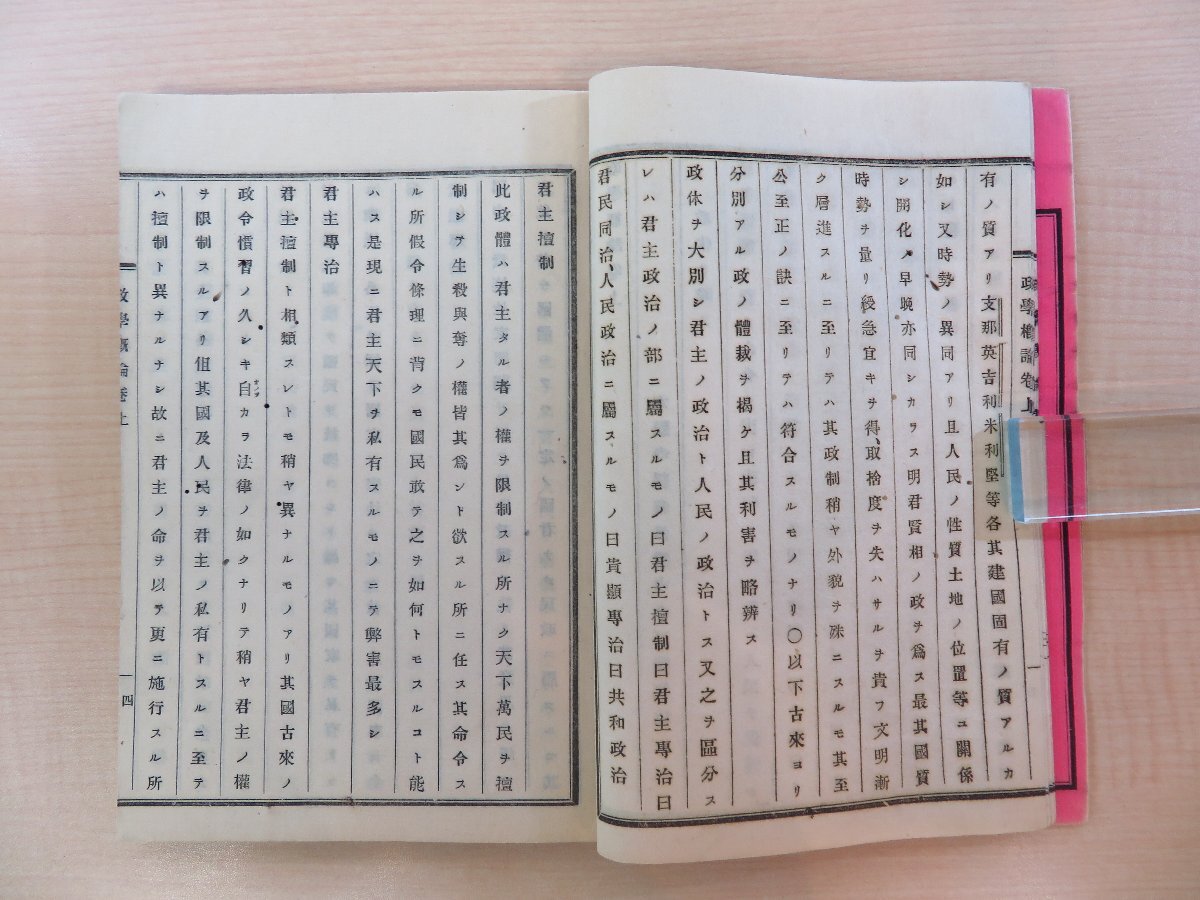 政學概論卷上
有ノ質アリ支那英吉利米利堅等各其建國固有ノ質アルカ
如シ又時勢ノ異同アリ且人民ノ性質土地ノ位置等ユ關係
シ開化ノ早晩亦同シカラス明君賢相ノ政ヲ爲ス最其國質
時勢ヲ量リ緩急宜キヲ得、取捨度ヲ失ハサルヲ貴フ文明漸
ク層進スルニ至リテハ其政制稍ヤ外貌ヲ殊ニスルモ其至
公至正ノ訣ニ至リテハ符合スルモノナリ〇以下古來ヨリ
分別アル政ノ體裁ヲ揭ケ且其利害ヲ略辨ス
政休ヲ大別シ君主ノ政治ト人民ノ政治トス又之ヲ區分ス
レハ君主政治ノ部ニ屬スルモノ曰君主擅制曰君主專治曰
君民同治、人民政治ニ屬スルモノ曰貴顯專治曰共和政治
君主擅制
此政體ハ君主タル者ノ權ヲ限制スル所ナク天下萬民ヲ擅
制シテ生殺與奪ノ權皆其爲ント欲スル所ニ任ス其命令ス
ル所假令條理ニ背クモ國民敢テ之ヲ如何トモスルコト能
ハス是現ニ君主天下ヲ私有スルモノニテ弊害最多シ
君主專治
君主擅制ト相類スレトモ稍ヤ異ナルモノアリ其國古來ノ
政令慣習ノ久シキ自カラ法律ノ如クナリテ稍ヤ君主ノ權
ヲ限制スルアリ伹其國及人民ヲ君主ノ私有トスルニ至テ
ハ擅制ト異ナルナシ故ニ君主ノ命ヲ以テ更ニ施行スル所
政學概論卷上
四